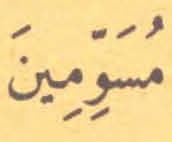 مُسَوِّمِينَ